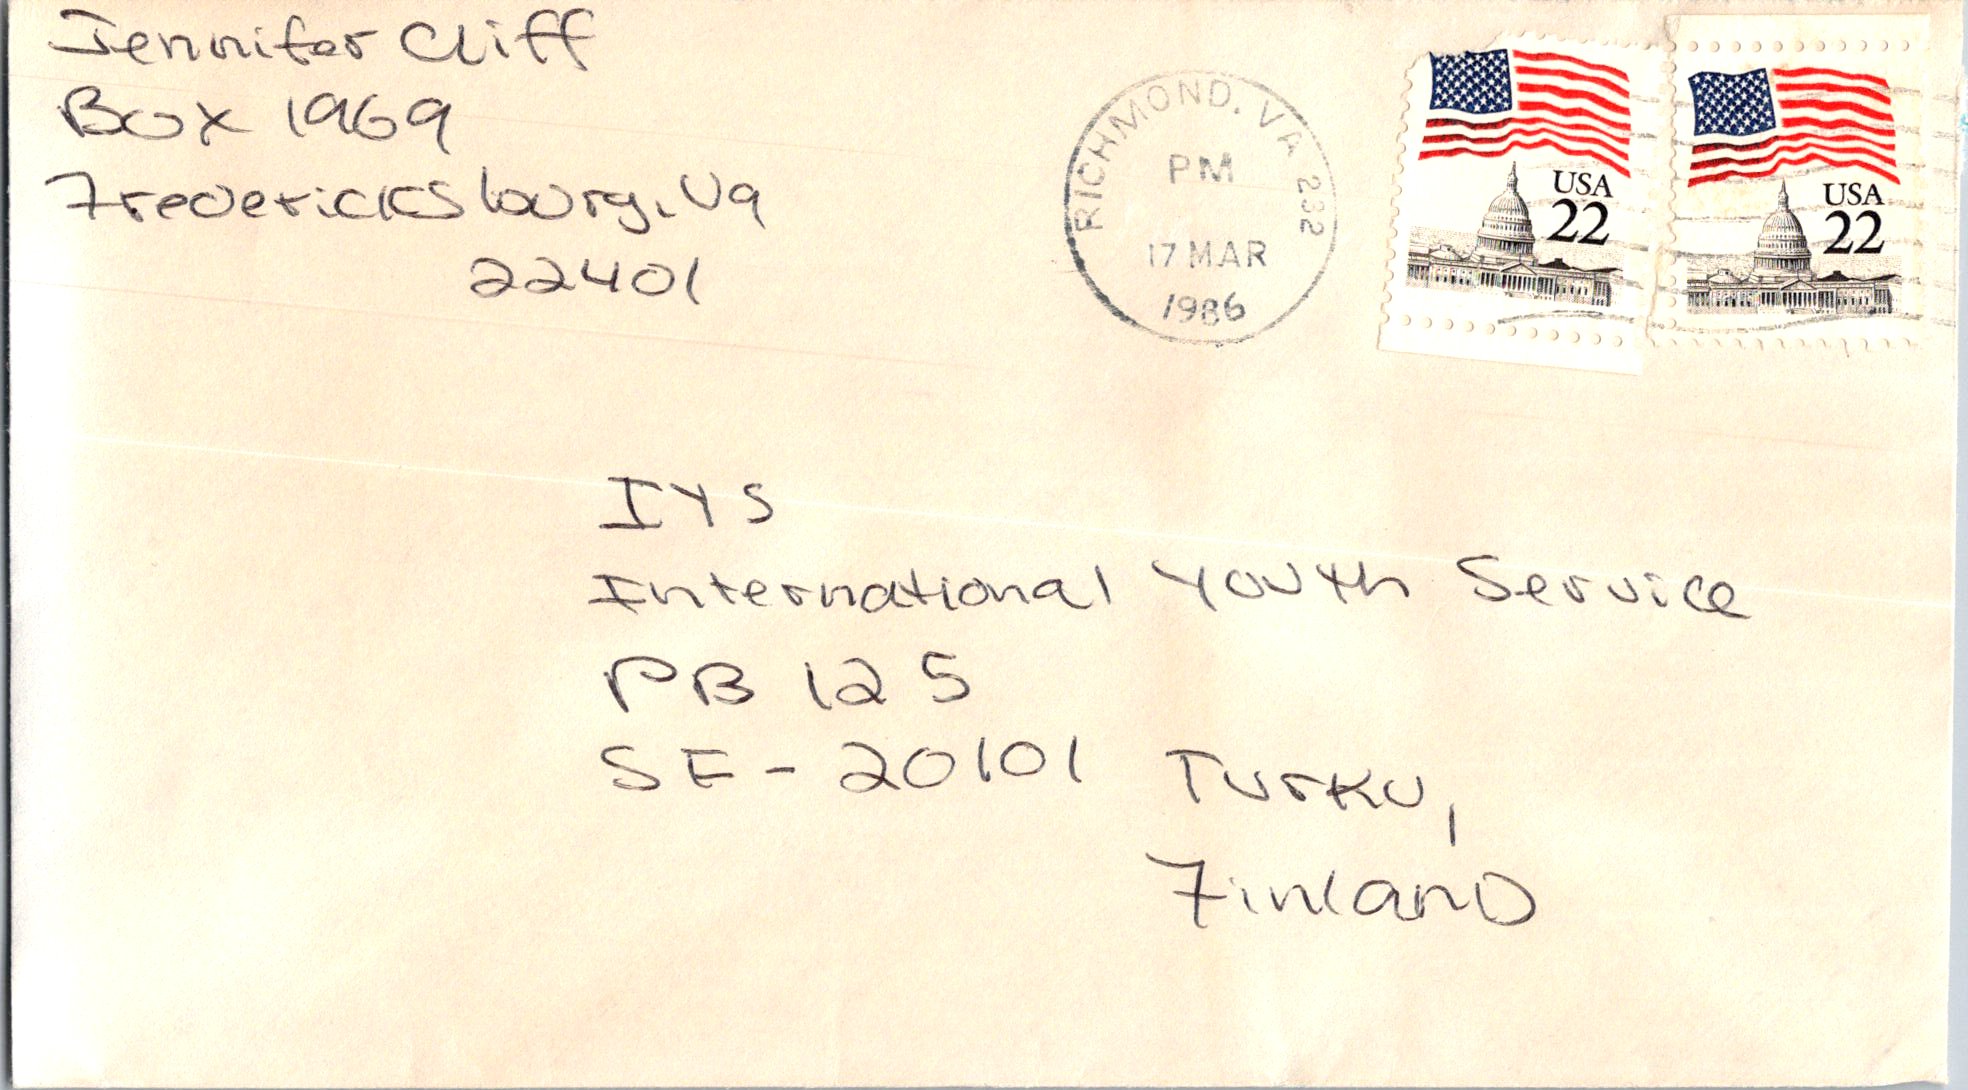 Jennifer Cliff
Box 1969
Fredericksburg, Va
22401
RICHMOND, VA 232
PM
17 MAR
1986
USA
22
USA
22
IYS
International Youth Service
PB 125
SF-20101 Turku,
Finland